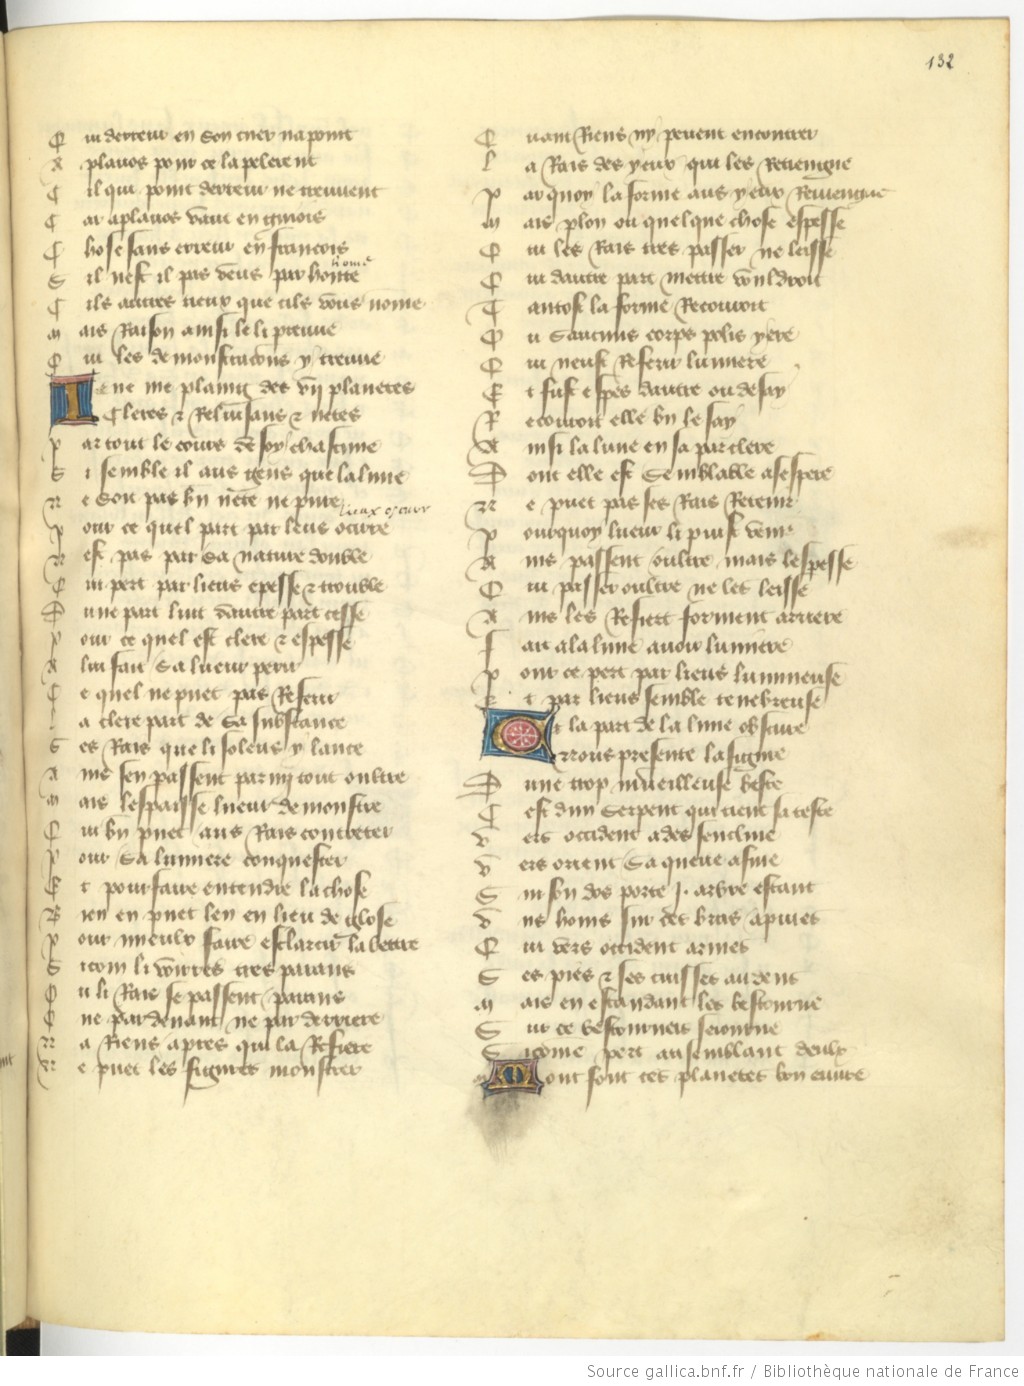 132
Qui derreur en son cuer na point
Aplavos pour ce lapelerent
Cil qui point derreur ne treuvent
Car aplavos vault en grijois
Chose sans erreur en francois
Sil nest il pas veus par honte
home
Cils autres cieux que cils vous nome
Mais Raison ainsi le li preuve
Qui les demonstracons y treuve
Ie ne me plaing des vij planetes
Cleres et Reluisans et netes
Par tout le cours de soy chascune
Si semble il aus gens que la lune
Ne soit pas bn nete ne pure
Pour ce quel part par leus ocure
lieux oscurs
Nest pas par sa nature double
Qui pert par lieus epesse et trouble
Dune part luit dautre part cesse
Pour ce quel est clere et espesse
A lui fait sa lueur perir
Ce quel ne puet pas Referir
La clere part de sa substance
Ses Rais que li soleus y lance
Ains sen passent parmy tout oultre
Mais lespaisse lueur demonstre
Qui bn puet aus Rais contreter
Pour sa lumiere conquester
Et pour faire entendre la chose
Bien en puet len en lieu de glose
Pour mieulx faire esclarcir la lettre
Sicom li voirres tresparans
Ou li Rais se passent parans
Que par devant ne par derriere
Na Riens apres qui la Refiere
Ne puet les figures monstrer
Quant Riens ny peuent encontrer
La Rais des yeux qui les Retiengne
Par quoy la forme aus yeux Reviengne
Mais plon ou quelque chose espesse
Qui les Rais tres passer ne lesse
Qui dautre part mettre vouldroit
Tantost la forme Recouvoit
Ou saucuns corps polis yere
Qui peust Referir lumiere
Et fust espes dautre ou de say
Recouvoit elle bn le say
Ainsi la lune en sa part clere
Dont elle est semblable a sespere
Ne puet pas ses Rais Retenir
Pourquoy lueur li puist venir
Ains passent oultre mais lespesse
Qui passer oultre ne les lesse
Ains les Refiert forment arriere
Fait a la lune avoir lumiere
Pour ce pert par lieus lumineuse
Et par lieus semble tenebreuse
Et la part de la lune obscure
Nous presente la figure
Dune trop mveilleuse beste
Cest dun serpent qui tient sa teste
Vers occident ades sencline
Vers orient sa queue afine
Sur son dos porte .j. arbre estant
Ses piés et ses cuisses au dens
Mais en estandant les bestourne
Sur ce bestourneis seiourne
Uns homs sur ces bras apuiés
Qui vers occident a ruiés
Sicome pert au semblant deulx
Mont font ces planetes bon euvre